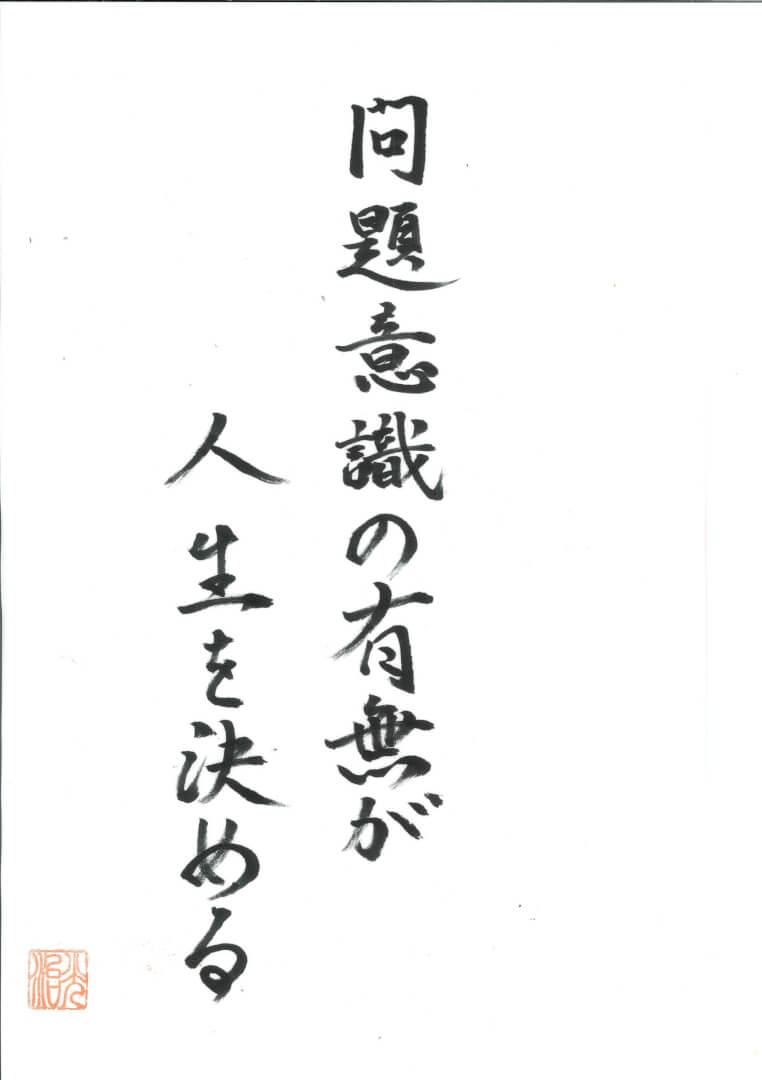 問題意識の有無が
人生を決める